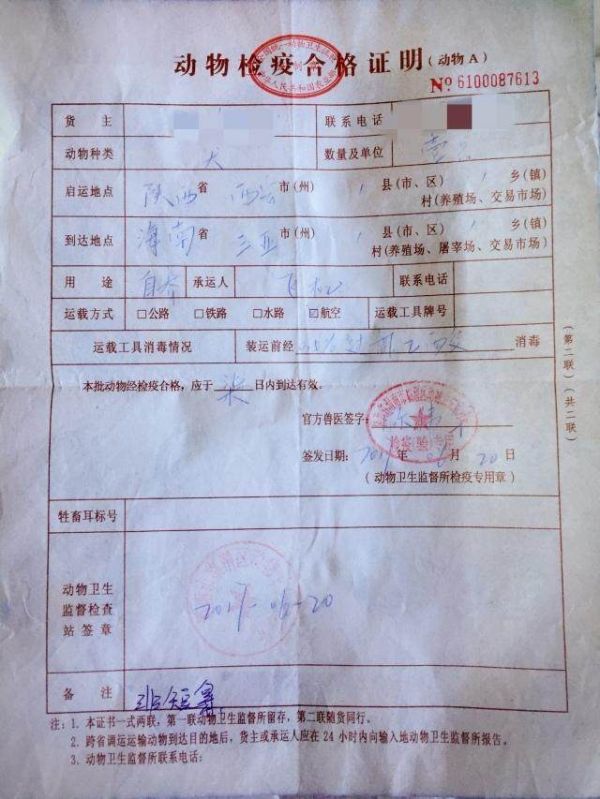 动物检疫合格证明(动物A)
№ 6100087613
货主 联系电话
动物种类 犬 数量及单位
启运地点 陕西省 西安市(州) / 县(市、区) / 乡(镇)
村(养殖场、交易市场)
到达地点 海南省 三亚市(州) / 县(市、区) / 乡(镇)
村(养殖场、屠宰场、交易市场)
用途 自养 承运人 飞机 联系电话
运载方式 □公路 □铁路 □水路 ☑航空 运载工具牌号
运载工具消毒情况 装运前经 消毒
本批动物经检疫合格,应于 柒 日内到达有效。
官方兽医签字:
签发日期: 年 06 月 20 日
(动物卫生监督所检疫专用章)
牲畜耳标号
动物卫生
监督检查
站签章
备注 非短鼻
注:1. 本证书一式两联,第一联动物卫生监督所留存,第二联随货同行。
2. 跨省调运运输动物到达目的地后,货主或承运人应在24小时内向输入地动物卫生监督所报告。
3. 动物卫生监督所联系电话:
(第二联)(共二联)